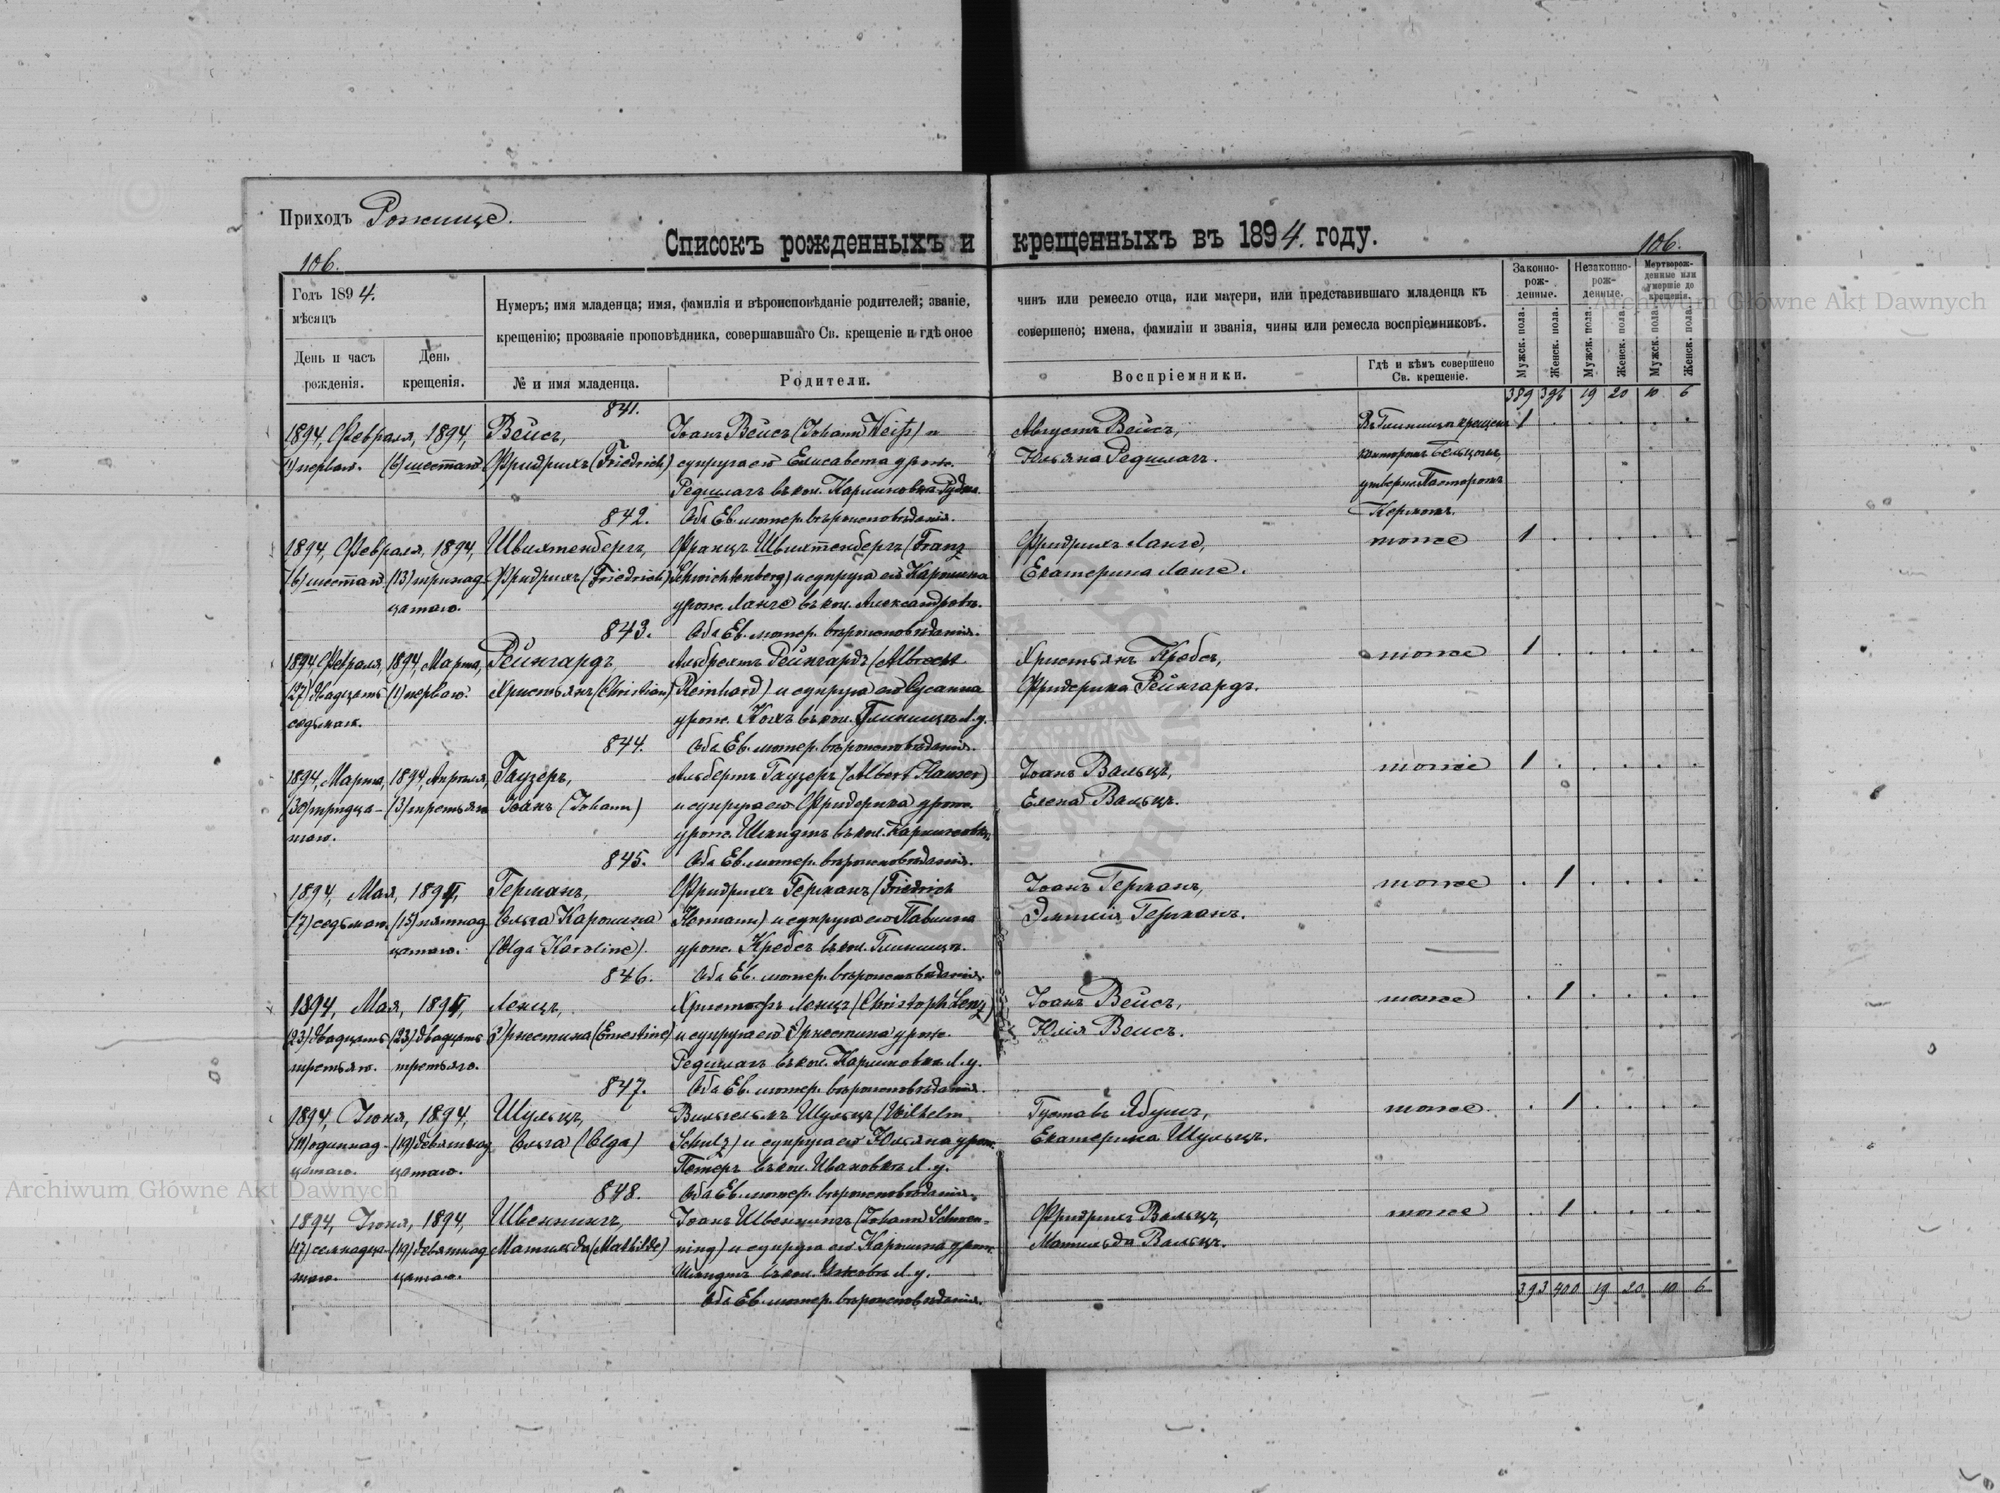 Приходъ Рожище.
Списокъ рожденныхъ и крещенныхъ въ 1894. году.
106.
106.
Годъ 1894.
мѣсяцъ
День и часъ рожденія.
День крещенія.
Нумеръ; имя младенца; имя, фамилія и вѣроисповѣданіе родителей; званіе, чинъ или ремесло отца, или матери, или представившаго младенца къ
крещенію; прозваніе проповѣдника, совершавшаго Св. крещеніе и гдѣ оное совершено; имена, фамиліи и званія, чины или ремесла воспріемниковъ.
№ и имя младенца.
Родители.
Воспріемники.
Гдѣ и кѣмъ совершено Св. крещеніе.
Законно-рож-денные.
Незаконно-рож-денные.
Мертворож-денные или умершіе до крещенія.
Мужск. пола.
Женск. пола.
Мужск. пола.
Женск. пола.
Мужск. пола.
Женск. пола.
389 396 19 20 10 6
841.
1894, Февраля, 1894, Вейсъ, Іоанъ Вейсъ (Johann Weiß) и Августъ Вейсъ, 1
(1) перваго. (6) шестаго. Фридрихъ (Friedrich) супруга его Елисавета урож. Юльяна Редилагъ.
Редилагъ въ кол.
утвержд. Пасторомъ
842. Оба Ев. лютер. вѣроисповѣданія.
1894, Февраля, 1894, Швихтенбергъ, Францъ Швихтенбергъ (Franz Фридрихъ Ланге, тоже 1
(6) шестаго (13) тринад- Фридрихъ (Friedrich) Schwichtenberg) и супруга его Каролина Екатерина Ланге.
цатаго. урож. Ланге въ кол. Александровк.
843. Оба Ев. лютер. вѣроисповѣданія.
1894, Февраля, 1894, Марта, Рейнгардъ, Альбрехтъ Рейнгардъ (Albrecht Христьянъ Кребсъ, тоже 1
(27) двадцать (1) перваго. Христьянъ (Christian) Reinhard) и супруга его Сусанна Фридерика Рейнгардъ.
седьмаго. урож. въ кол. Глинищѣ Л. у.
844. Оба Ев. лютер. вѣроисповѣданія.
1894, Марта, 1894, Апрѣля, Гаузеръ, Альбертъ Гаузеръ (Albert Hauser) Іоанъ Вальцъ, тоже 1
(30) тридца- (3) третьяго Іоанъ (Johann) и супруга его Фридерика урож. Елена Вальцъ.
таго. урож. Шмидтъ въ кол.
845. Оба Ев. лютер. вѣроисповѣданія.
1894, Мая, 1894, Германъ, Фридрихъ Германъ (Friedrich Іоанъ Германъ, тоже 1
(7) седьмаго. (15) пятнад- Ольга Каролина Hermann) и супруга его Павлина Эмилія Германъ.
цатаго. (Olga Karoline). урож. Кребсъ въ кол. Глинищѣ.
846. Оба Ев. лютер. вѣроисповѣданія.
1894, Мая, 1894, Ленцъ, Христофъ Ленцъ (Christoph Lenz) Іоанъ Вейсъ, тоже 1
(23) двадцать (23) двадцать Эрнестина (Ernestine) и супруга его Эрнестина урож. Юлія Вейсъ.
третьяго. третьяго. Редилагъ въ кол. Л. у.
847. Оба Ев. лютер. вѣроисповѣданія.
1894, Іюня, 1894, Шульцъ, Вильгельмъ Шульцъ (Wilhelm Густавъ Ябушъ, тоже. 1
(11) одиннад- (19) девятнад- Ольга (Olga) Schulz) и супруга его Юльяна урож. Екатерина Шульцъ.
цатаго. цатаго. въ кол. Ивановкѣ Л. у.
848. Оба Ев. лютер. вѣроисповѣданія.
1894, Іюня, 1894, Швеннингъ, Іоанъ Швеннингъ (Johann Schwen- Фридрихъ Вальцъ, тоже 1
(17) семнадца- (19) девятнад- Матильда (Mathilde) ning) и супруга его Каролина урож. Матильда Вальцъ.
таго. цатаго. Шмидтъ въ кол. Л. у.
Оба Ев. лютер. вѣроисповѣданія.
393 400 19 20 10 6
Archiwum Główne Akt Dawnych
Archiwum Główne Akt Dawnych